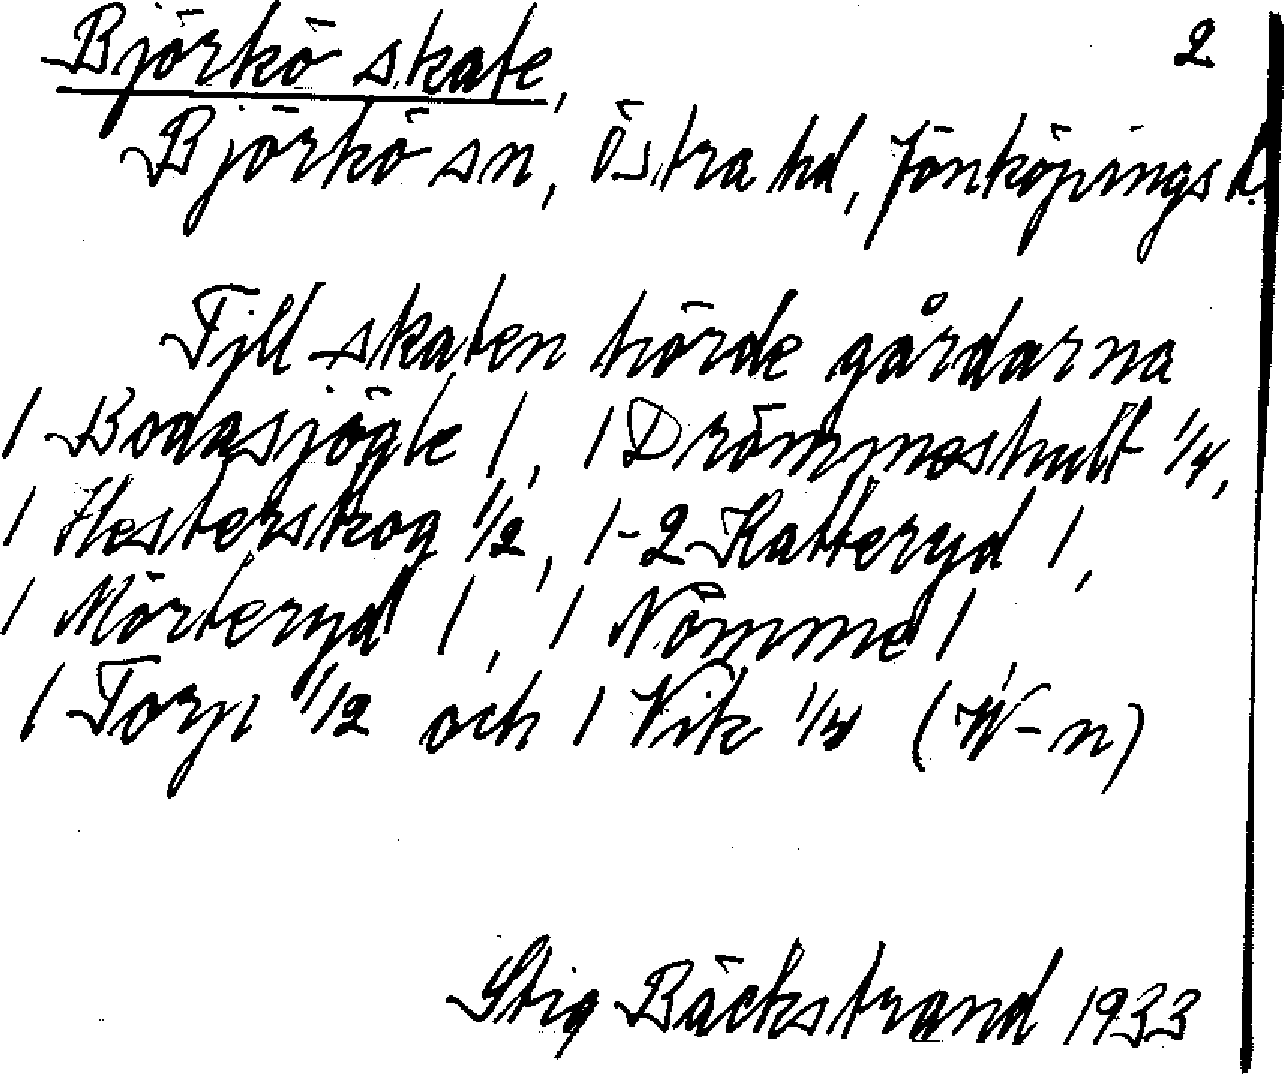 Björkö skate, 2
Björkö sn, Östra hd, Jönköpings l.
Till skaten hörde gårdarna
1 Bodasjögle 1, 1 Drömmeshult 1/4,
1 Hesterskog 1/2, 1-2 Katteryd 1,
1 Mörteryd 1, 1 Nömme 1,
1 Torp 1/12 och 1 Vik 1/4 (W-n)
Stig Bäckstrand 1933